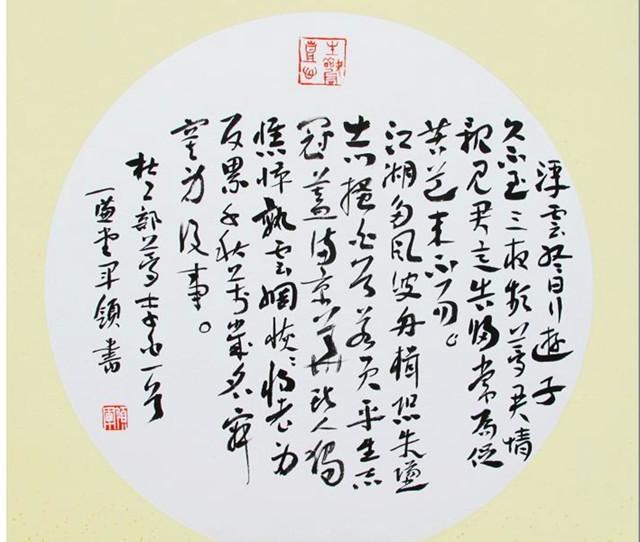 浮雲終日行遊子
久不至三夜頻夢君情
親見君意告歸常局促
苦道来不易。
江湖多風波舟楫恐失墜
出門搔白首若負平生志
冠蓋滿京華斯人獨
憔悴孰云網恢恢將老身
反累千秋萬歲名寂
寞身後事。
杜工部夢李白一首
書